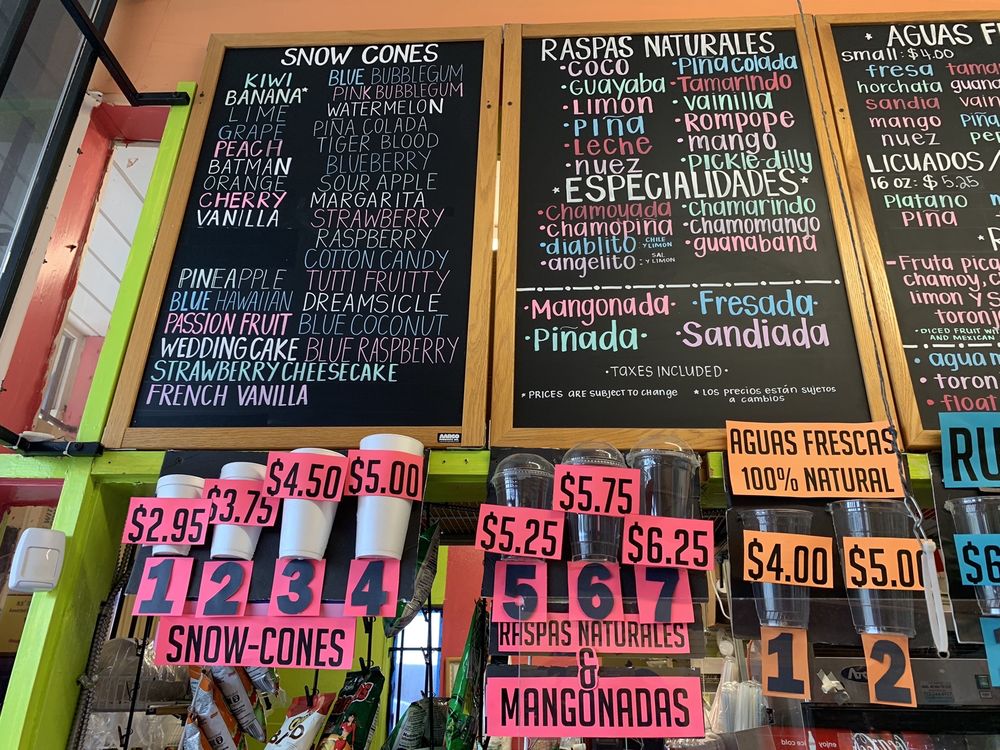 SNOW CONES
KIWI
BANANA*
LIME
GRAPE
PEACH
BATMAN
ORANGE
CHERRY
VANILLA
PINEAPPLE
BLUE HAWAIIAN
PASSION FRUIT
WEDDING CAKE
STRAWBERRY CHEESECAKE
FRENCH VANILLA
BLUE BUBBLEGUM
PINK BUBBLEGUM
WATERMELON
PIÑA COLADA
TIGER BLOOD
BLUEBERRY
SOUR APPLE
MARGARITA
STRAWBERRY
RASPBERRY
COTTON CANDY
TUTTI FRUITTY
DREAMSICLE
BLUE COCONUT
BLUE RASPBERRY
RASPAS NATURALES
•COCO
•Guayaba
•Limon
•Piña
•Leche
•nuez
•Pina Colada
•Tamarindo
•vainilla
•Rompope
•mango
•Pickle-dilly
*ESPECIALIDADES*
•chamoyada
•chamopina
•diablito: CHILE Y LIMON
•angelito: SAL Y LIMON
•chamarindo
•chamomango
•guanabana
•Mangonada•
•Fresada•
•Piñada•
•Sandiada
•TAXES INCLUDED•
* PRICES ARE SUBJECT TO CHANGE
* LOS PRECIOS ESTÁN SUJETOS
a cambios
* AGUAS F
small: $4.00
fresa
horchata
sandia
mango
nuez
LICUADOS/
16 oz: $5.25
Platano
Pina
-Fruta pica
chamoy, a
limon y s
toronj
•DICED FRUIT WI
AND MEXICAN
•agua n
•toron
•float
$2.95
$3.75
$4.50
$5.00
1
2
3
4
SNOW-CONES
$5.25
$5.75
$6.25
5
6
7
RASPAS NATURALES
&
MANGONADAS
AGUAS FRESCAS
100% NATURAL
$4.00
$5.00
1
2
RU
$6